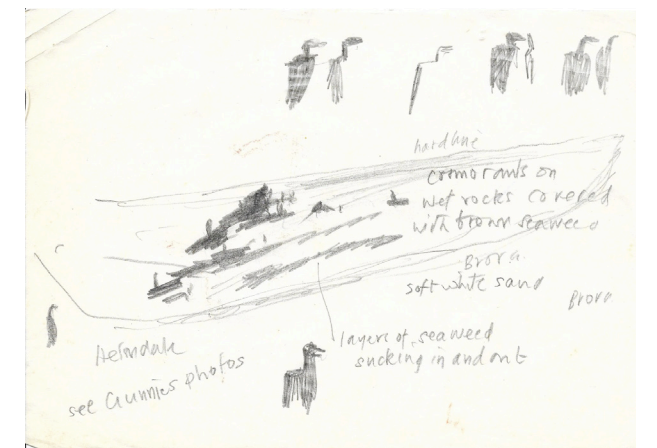 hard line
cormorants on
wet rocks covered
with brown seaweed
Brora.
soft white sand
Brora
layers of seaweed
sucking in and out
Helmdale
see Gunnies photos